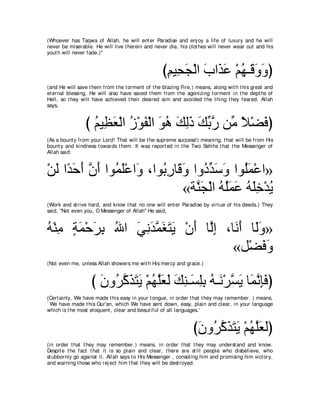 (Whoever has Taqwa of Allah, he will enter Paradise and enjoy a life of luxury and he will
never be miserable. He will live therein and never die, his clothes will never wear out and his
youth will never fade.)"
(وَوَقَـهُمْ عَذَابَ الْجَحِيمِ)
(and He will save them from the torment of the blazing Fire,) means, along with this great and
eternal blessing, He will also have saved them from the agonizing torment in the depths of
Hell, so they will have achieved their desired aim and avoided the thing they feared. Allah
says,
(فَضْلاً مِّن رَّبِّكَ ذَلِكَ هُوَ الْفَوْزُ الْعَظِيمُ )
(As a bounty from your Lord! That will be the supreme success!) meaning, that will be from His
bounty and kindness towards them. It was reported in the Two Sahihs that the Messenger of
Allah said:
«اعْمَلُوا وَسَدِّدُوا وَقَارِبُوا، وَاعْلَمُوا أَنَّ أَحَدًا لَنْ
يُدْخِلَهُ عَمَلُهُ الْجَنَّة»
(Work and strive hard, and know that no one will enter Paradise by virtue of his deeds.) They
said, "Not even you, O Messenger of Allah" He said,
«وَلَا أَنَا، إِلَّا أَنْ يَتَغَمَّدَنِيَ اللهُ بِرَحْمَةٍ مِنْهُ
وَفَضْل»
(Not even me, unless Allah showers me with His mercy and grace.)
(فَإِنَّمَا يَسَّرْنَـهُ بِلِسَـنِكَ لَعَلَّهُمْ يَتَذَكَّرُونَ )
(Certainly, We have made this easy in your tongue, in order that they may remember. ) means,
` We have made this Qur'an, which We have sent down, easy, plain and clear, in your language
which is the most eloquent, clear and beautiful of all languages.'
(لَعَلَّهُمْ يَتَذَكَّرُونَ)
(in order that they may remember.) means, in order that they may understand and know.
Despite the fact that it is so plain and clear, there are still people who disbelieve, who
stubbornly go against it. Allah says to His Messenger , consoling him and promising him victory,
and warning those who reject him that they will be destroyed.